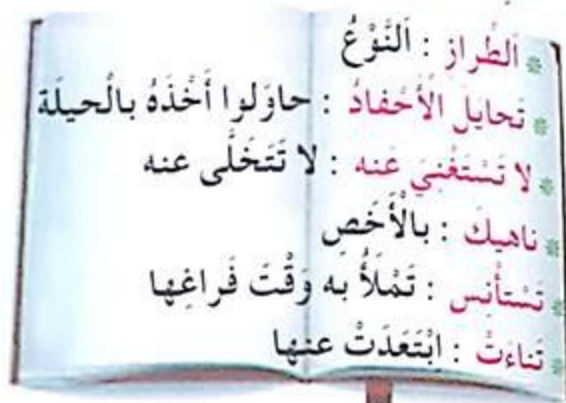 * اَلطِّراز : اَلنَّوْعُ
* تَحايلَ الْأَحْفادُ : حاوَلوا أَخْذَهُ بالْحيلَة
* لا تَسْتَغْنِيَ عَنه : لا تَتَخَلَّى عنه
* ناهيكَ : بالْأَخَصِ
* تَسْتأْنِس : تَمْلَأُ به وَقْتَ فَراغِها
* تَناءَتْ : ابْتَعَدَتْ عنها